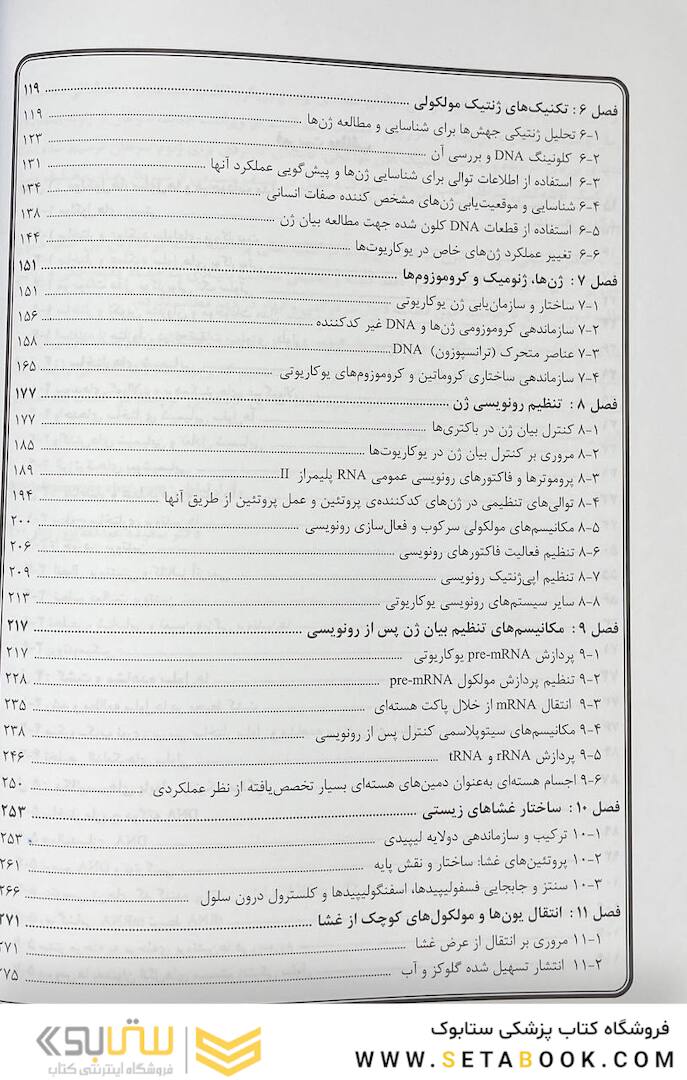 فصل ۶: تکنیک‌های ژنتیک مولکولی ۱۱۹
۶-۱ تحلیل ژنتیکی جهش‌ها برای شناسایی و مطالعه ژن‌ها ۱۱۹
۶-۲ کلونینگ DNA و بررسی آن ۱۲۳
۶-۳ استفاده از اطلاعات توالی برای شناسایی ژن‌ها و پیش‌گویی عملکرد آنها ۱۳۱
۶-۴ شناسایی و موقعیت‌یابی ژن‌های مشخص کننده صفات انسانی ۱۳۴
۶-۵ استفاده از قطعات DNA کلون شده جهت مطالعه بیان ژن ۱۳۸
۶-۶ تغییر عملکرد ژن‌های خاص در یوکاریوت‌ها ۱۴۴
فصل ۷: ژن‌ها، ژنومیک و کروموزوم‌ها ۱۵۱
۷-۱ ساختار و سازمان‌یابی ژن یوکاریوتی ۱۵۱
۷-۲ سازماندهی کروموزومی ژن‌ها و DNA غیر کدکننده ۱۵۶
۷-۳ عناصر متحرک (ترانسپوزون) DNA ۱۵۸
۷-۴ سازماندهی ساختاری کروماتین و کروموزوم‌های یوکاریوتی ۱۶۵
فصل ۸: تنظیم رونویسی ژن ۱۷۷
۸-۱ کنترل بیان ژن در باکتری‌ها ۱۷۷
۸-۲ مروری بر کنترل بیان ژن در یوکاریوت‌ها ۱۸۵
۸-۳ پروموترها و فاکتورهای رونویسی عمومی RNA پلیمراز II ۱۸۹
۸-۴ توالی‌های تنظیمی در ژن‌های کدکننده‌ی پروتئین و عمل پروتئین از طریق آنها ۱۹۴
۸-۵ مکانیسم‌های مولکولی سرکوب و فعال‌سازی رونویسی ۲۰۰
۸-۶ تنظیم فعالیت فاکتورهای رونویسی ۲۰۶
۸-۷ تنظیم اپی‌ژنتیک رونویسی ۲۰۹
۸-۸ سایر سیستم‌های رونویسی یوکاریوتی ۲۱۳
فصل ۹: مکانیسم‌های تنظیم بیان ژن پس از رونویسی ۲۱۷
۹-۱ پردازش pre-mRNA یوکاریوتی ۲۱۷
۹-۲ تنظیم پردازش مولکول pre-mRNA ۲۲۸
۹-۳ انتقال mRNA از خلال پاکت هسته‌ای ۲۳۵
۹-۴ مکانیسم‌های سیتوپلاسمی کنترل پس از رونویسی ۲۳۸
۹-۵ پردازش rRNA و tRNA ۲۴۶
۹-۶ اجسام هسته‌ای به‌عنوان دمین‌های هسته‌ای بسیار تخصص‌یافته از نظر عملکردی ۲۵۰
فصل ۱۰: ساختار غشاهای زیستی ۲۵۳
۱۰-۱ ترکیب و سازماندهی دولایه لیپیدی ۲۵۳
۱۰-۲ پروتئین‌های غشا: ساختار و نقش پایه ۲۶۱
۱۰-۳ سنتز و جابجایی فسفولیپیدها، اسفنگولیپیدها و کلسترول درون سلول ۲۶۶
فصل ۱۱: انتقال یون‌ها و مولکول‌های کوچک از غشا ۲۷۱
۱۱-۱ مروری بر انتقال از عرض غشا ۲۷۱
۱۱-۲ انتشار تسهیل شده گلوکز و آب ۲۷۵
فروشگاه کتاب پزشکی ستابوک
WWW.SETABOOK.COM
ستابوک
فروشگاه اینترنتی کتاب